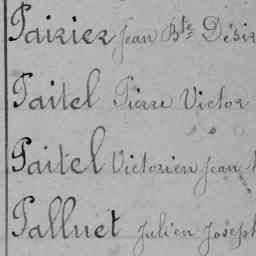 Pairier Jean Bte Désir
Paitel Pierre Victor
Paitel Victorien Jean
Palluet Julien Joseph